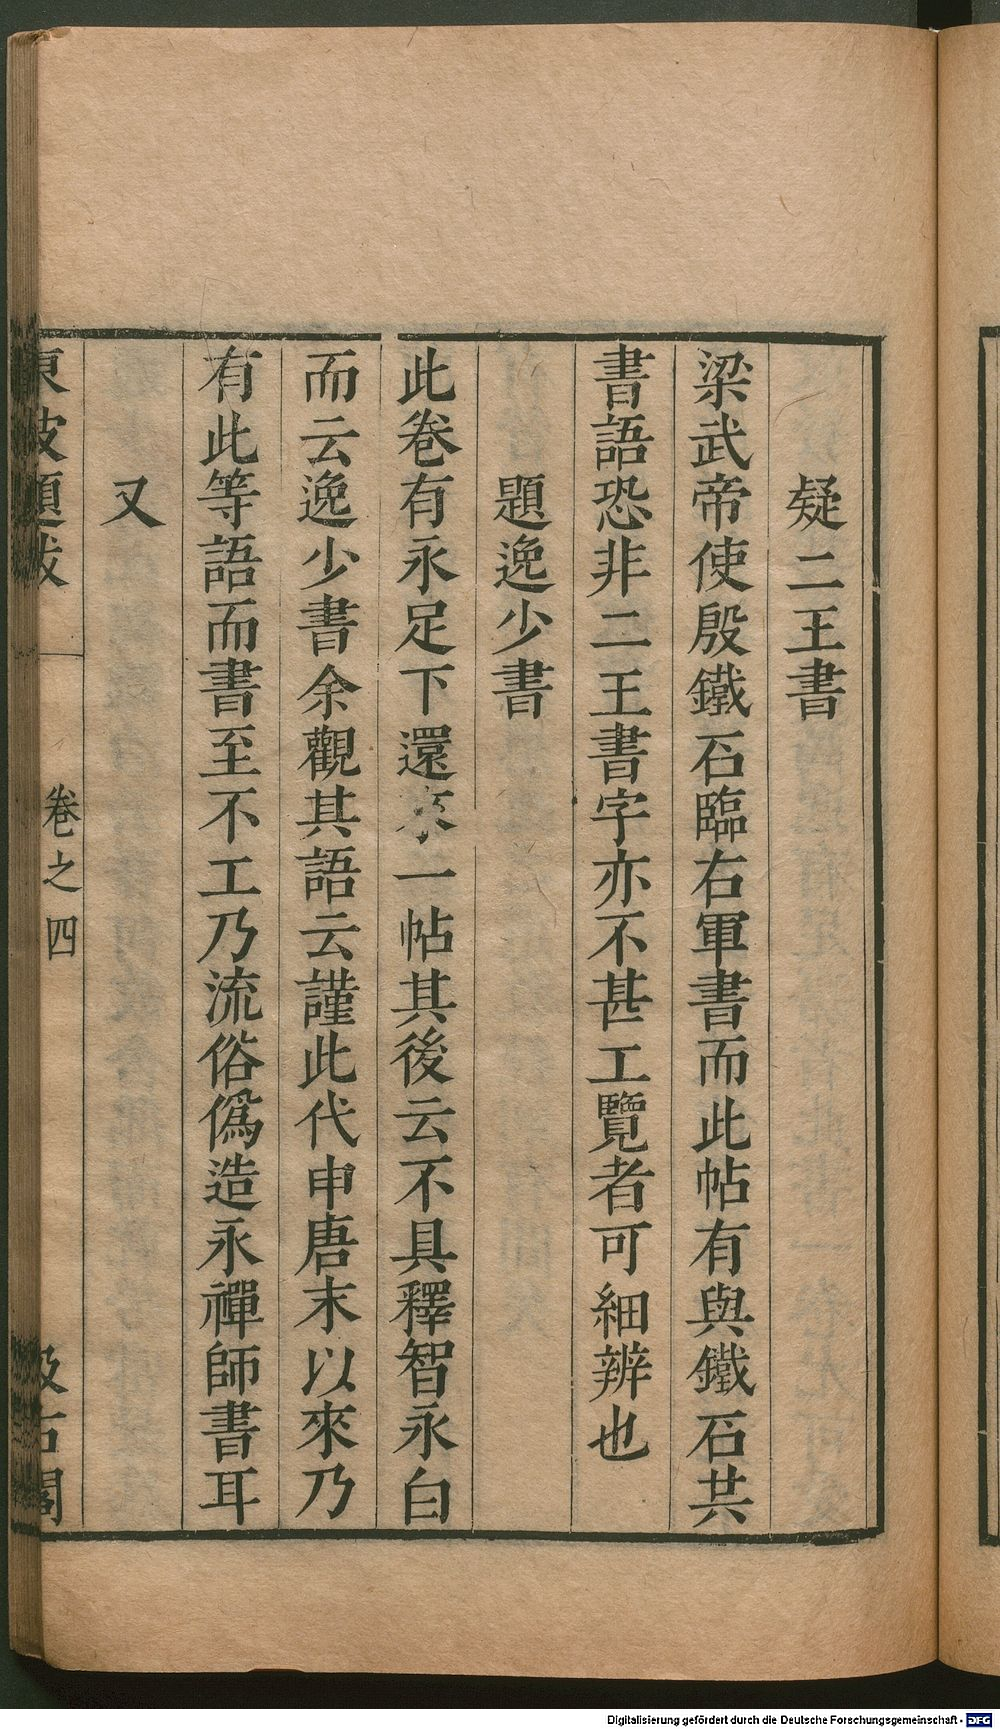 疑二王書
梁武帝使殷鐵石臨右軍書而此帖有與鐵石共
書語恐非二王書字亦不甚工覽者可細辨也
題逸少書
此卷有永足下還來一帖其後云不具釋智永白
而云逸少書余觀其語云謹此代申唐末以來乃
有此等語而書至不工乃流俗僞造永禪師書耳
又
東坡題跋
卷之四
汲古閣
Digitalisierung gefördert durch die Deutsche Forschungsgemeinschaft - DFG